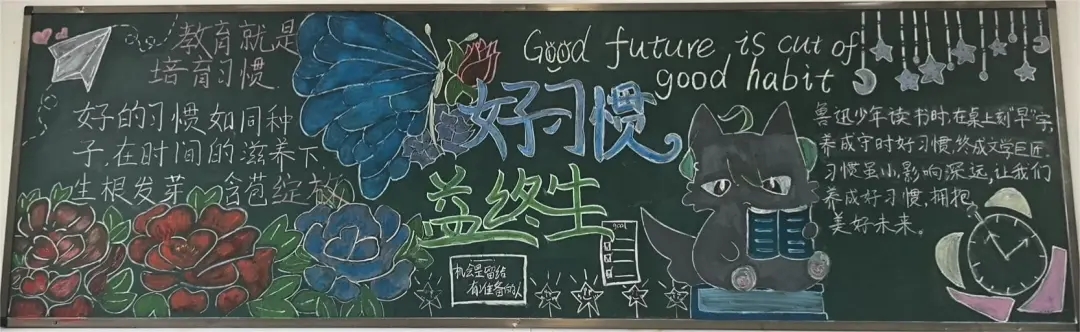 教育就是
培育习惯.
好的习惯如同种
子,在时间的滋养下,
生根发芽,含苞绽放
Good future is cut of
good habit
好习惯
益终生
机会是留给
有准备的人
goal
鲁迅少年读书时,在桌上刻“早”字,
养成守时好习惯,终成文学巨匠.
习惯虽小,影响深远,让我们
养成好习惯,拥抱
美好未来.